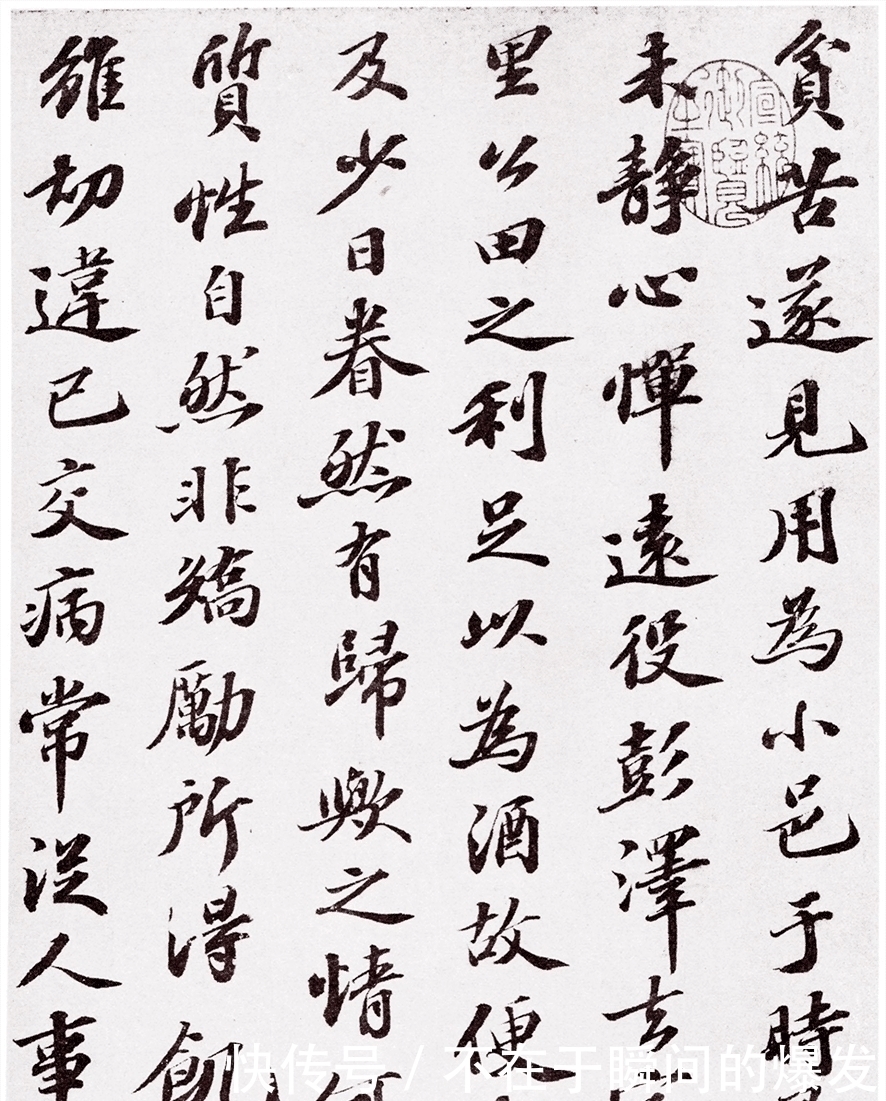 貧苦遂見用為小邑于時
未静心憚遠役彭澤去
里公田之利足以為酒故便
及少日眷然有歸歟之情何
質性自然非矯勵所得飢
雖切違已交病常從人事
宣統御覽之寶
快传号/不在于瞬间的爆发